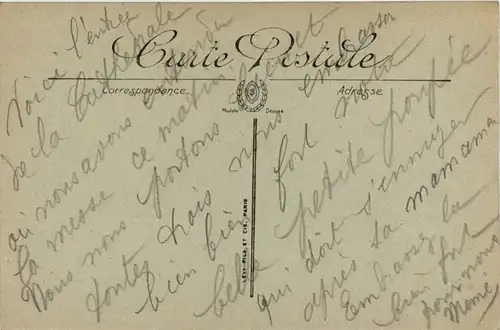 Carte Postale
Correspondance
Adresse
Modèle Déposé
LEVY FILS ET CIE, PARIS
Voici l'entrée
de la Cathédrale
où nous avons entendu
la messe ce matin
Nous nous portons
toutes trois
bien bien nous embrasser
fort notre
belle petite poupée
qui doit s'ennuyer
après sa mamaman
Embrassez la
bien fort
pour nous
Mémé